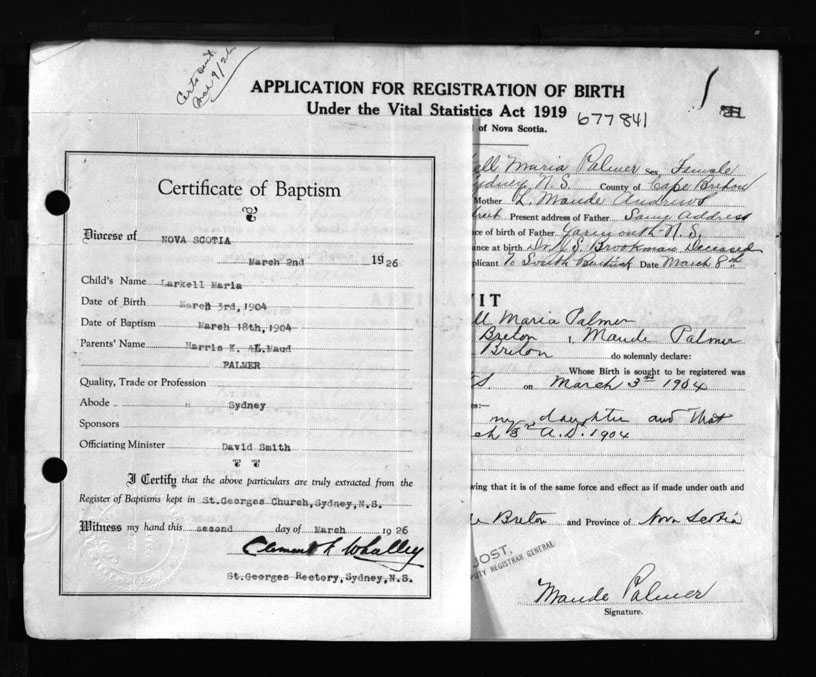 Certs sent
Mar 9/26
APPLICATION FOR REGISTRATION OF BIRTH
Under the Vital Statistics Act 1919
677841
of Nova Scotia.
Certificate of Baptism
Diocese of NOVA SCOTIA
March 2nd 1926
Child's Name Larkell Maria
Date of Birth March 3rd, 1904
Date of Baptism March 18th, 1904
Parents' Name Harris K. &L.Maud
PALMER
Quality, Trade or Profession
Abode " Sydney
Sponsors
Officiating Minister David Smith
I Certify that the above particulars are truly extracted from the
Register of Baptisms kept in St.Georges Church, Sydney, N.S.
Witness my hand this second day of March 1926
Clement Whalley
St.Georges Rectory, Sydney, N.S.
ell Maria Palmer Sex, Female
ydney, N.S. County of Cape Breton
Mother L. Maude Andrews
Present address of Father Same Address
ce of birth of Father Yarmouth N.S.
ance at birth Brookman Deceased
plicant Date March 8th
VIT
ll Maria Palmer
Breton I, Maude Palmer
Breton do solemnly declare:
Whose Birth is sought to be registered was
on March 3rd 1904
es:—
my daughter and that
ch 3rd A.D. 1904
wing that it is of the same force and effect as if made under oath and
Breton and Province of Nova Scotia
JOST,
PUTY REGISTRAR GENERAL
Maude Palmer
Signature.